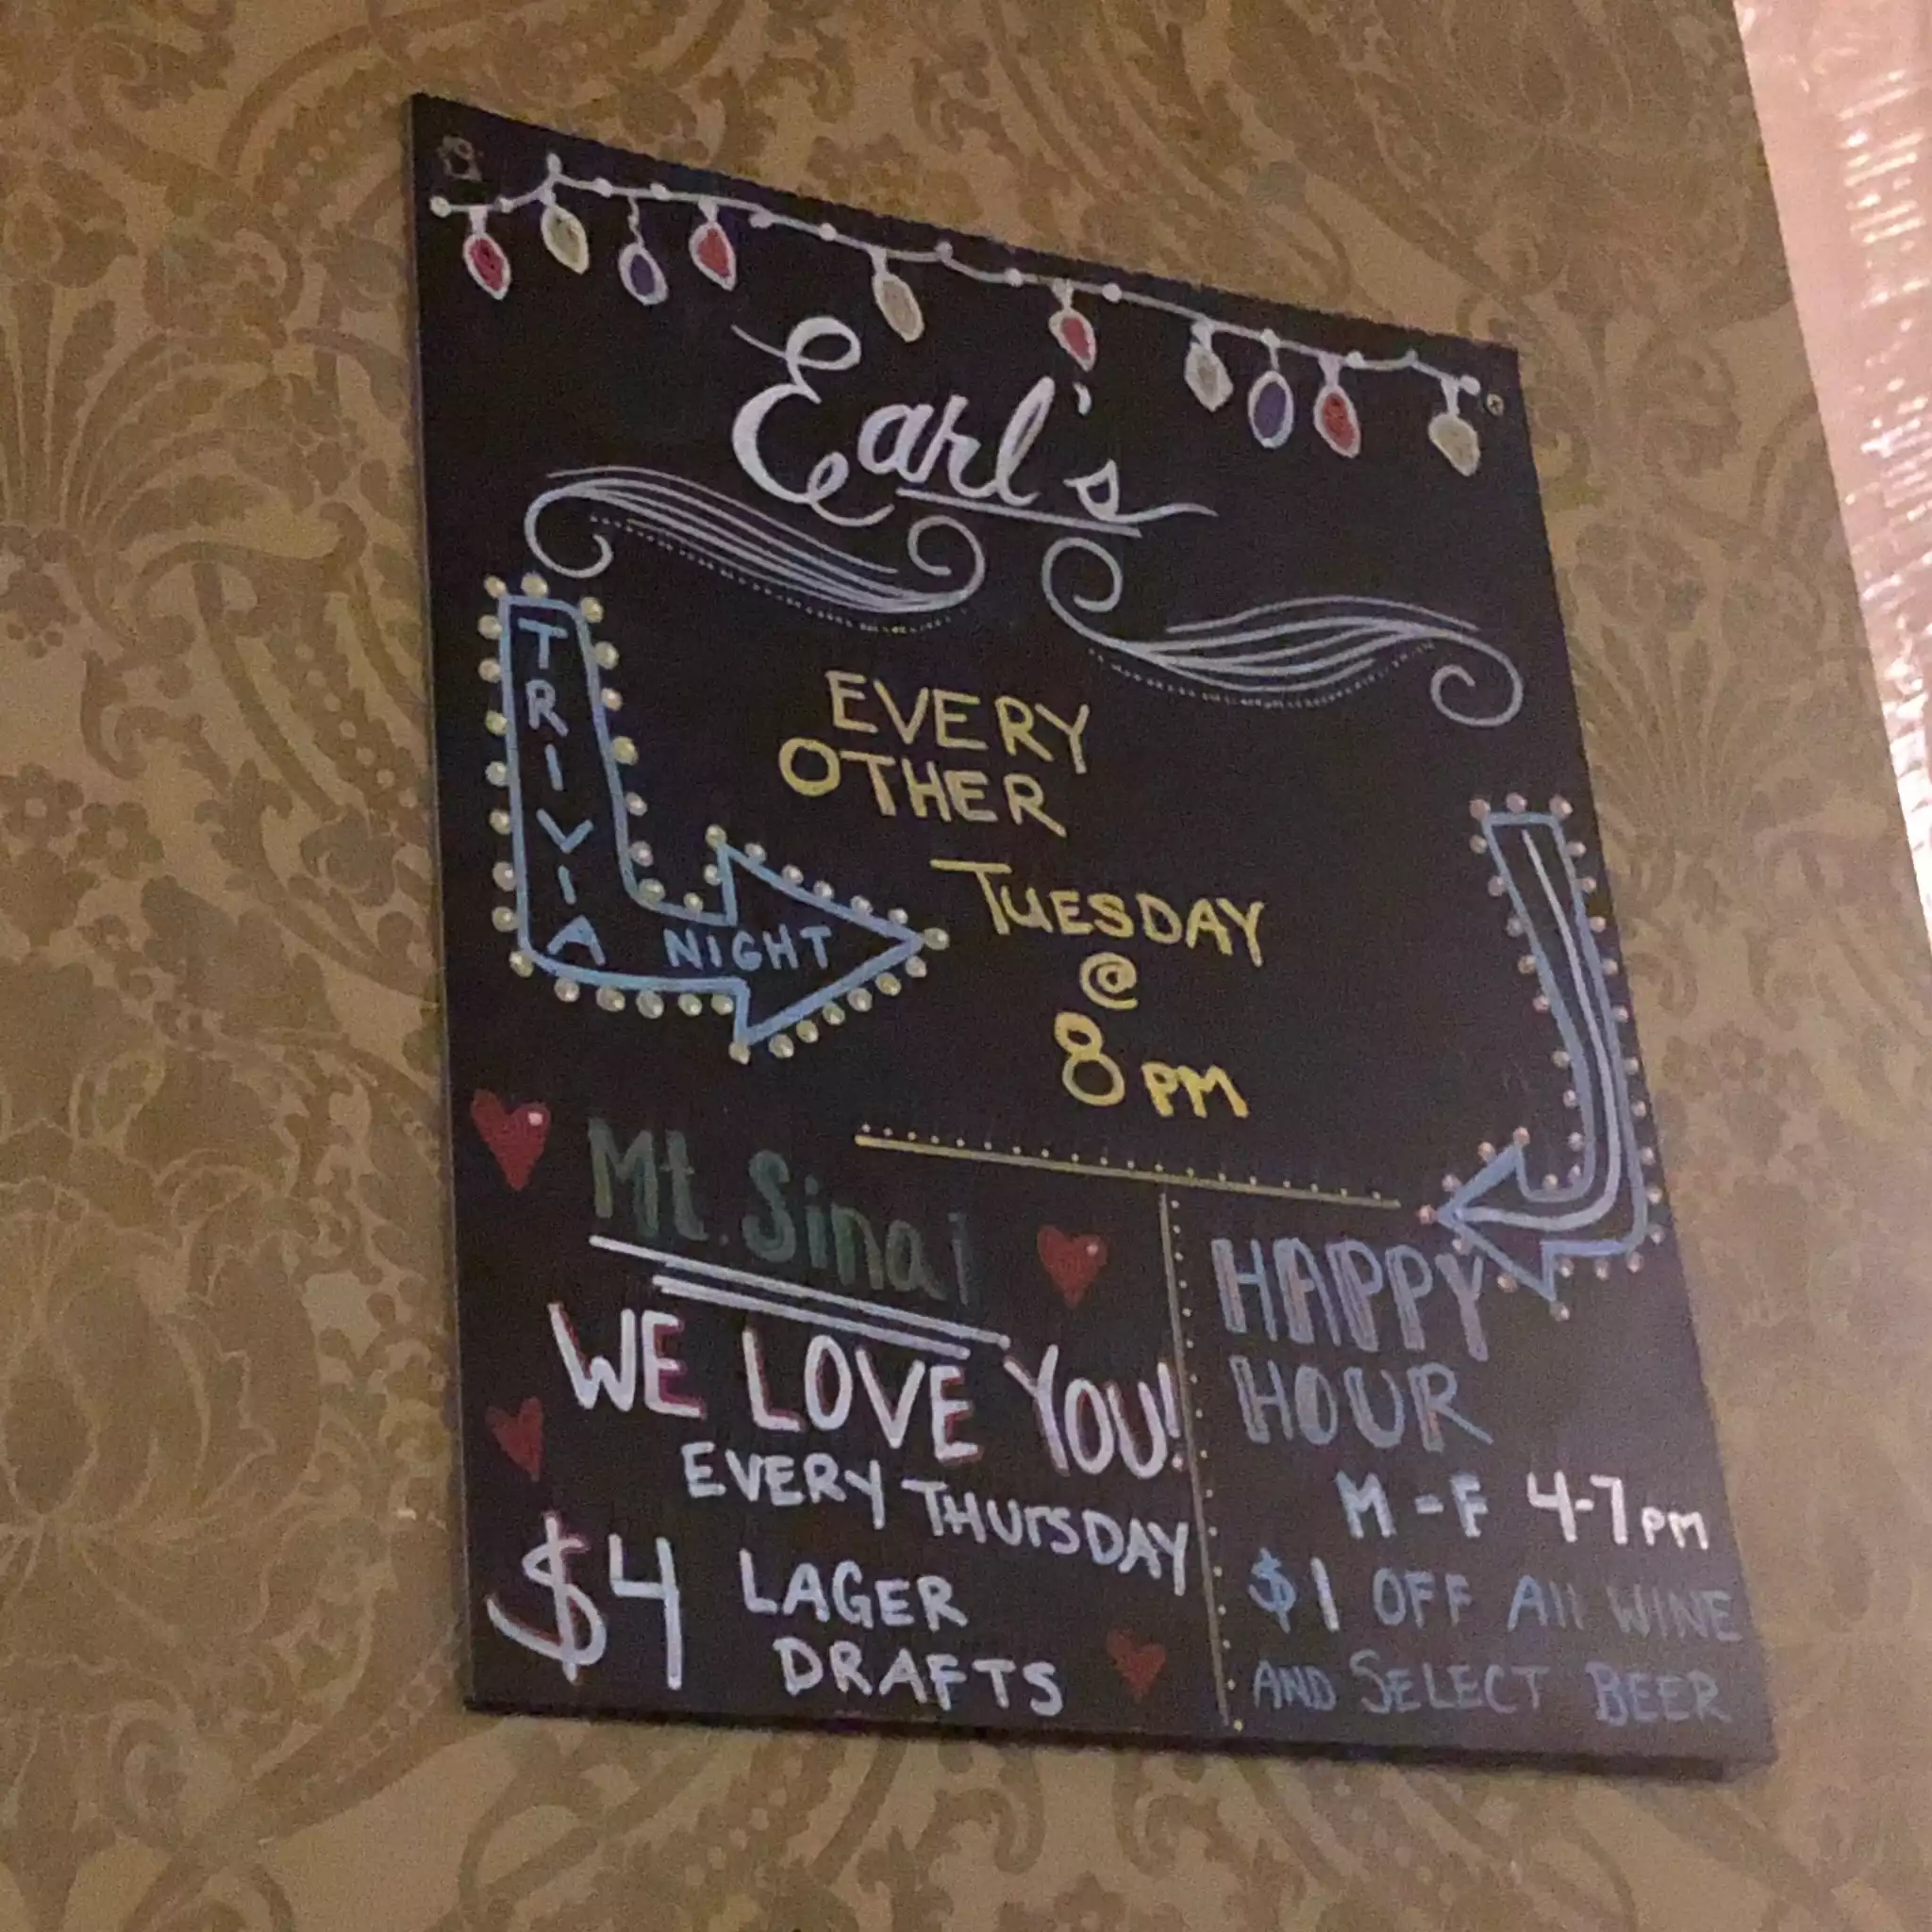 Earl's
TRIVIA
NIGHT
EVERY
OTHER
TUESDAY
@
8 PM
Mt. Sinai
WE LOVE YOU!
EVERY THURSDAY
$4 LAGER
DRAFTS
HAPPY
HOUR
M-F 4-7pm
$1 OFF All WINE
AND SELECT BEER